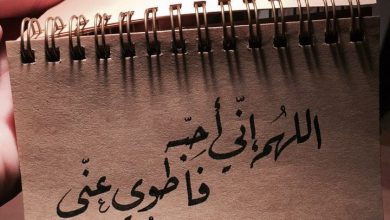 اللهُم إنّي أحبّه
فاطوي عنّي